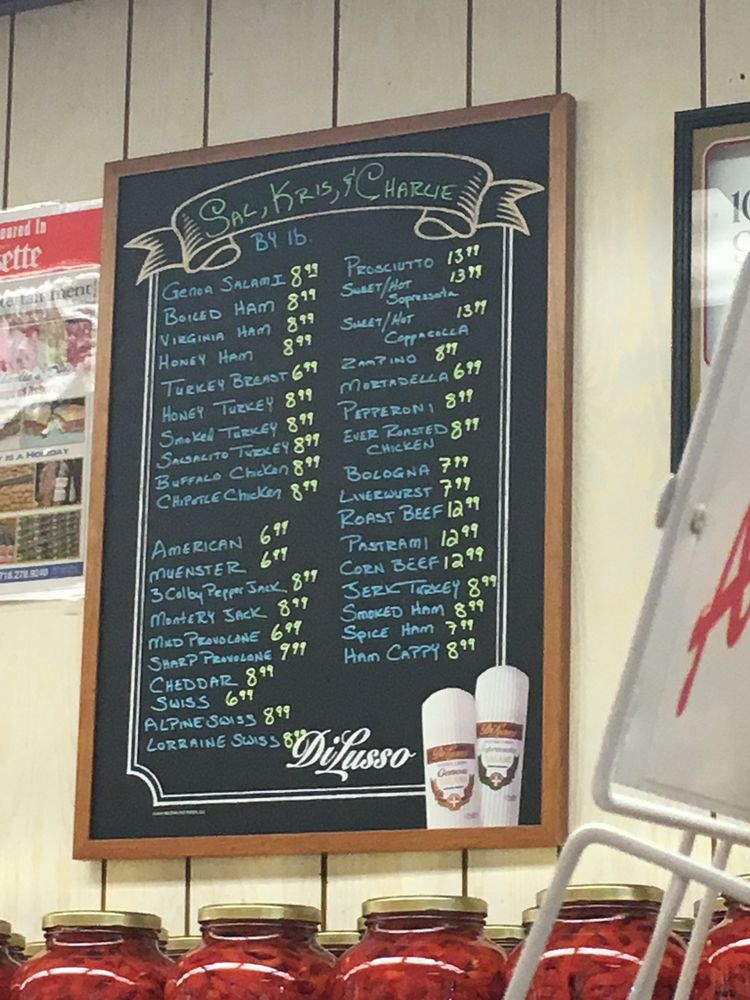 SAL, KRIS, & CHARLIE
BY lb.
GENOA SALAMI 8.99
BOILED HAM 8.99
VIRGINIA HAM 8.99
HONEY HAM 8.99
TURKEY BREAST 6.99
HONEY TURKEY 8.99
SMOKED TURKEY 8.99
SALSALITO TURKEY 8.99
BUFFALO CHICKEN 8.99
CHIPOTLE CHICKEN 8.99
AMERICAN 6.99
MUENSTER 6.99
3 Colby Pepper Jack 8.99
MONTERY JACK 8.99
MILD PROVOLONE 6.99
SHARP PROVOLONE 7.99
CHEDDAR 8.99
SWISS 6.99
ALPINE SWISS 8.99
LORRAINE SWISS 8.99
PROSCIUTTO 13.99
SWEET/HOT 13.99
Sopressata
SWEET/HOT 13.99
COPPACOLLA
ZAMPINO 8.99
MORTADELLA 6.99
PEPPERONI 8.99
EVER ROASTED 8.99
CHICKEN
BOLOGNA 7.99
LIVERWURST 7.99
ROAST BEEF 12.99
PASTRAMI 12.99
CORN BEEF 12.99
JERK TURKEY 8.99
SMOKED HAM 8.99
SPICE HAM 7.99
HAM CAPPY 8.99
DiLusso
DiLusso
Genoa
SALAME
DiLusso
SALAME
ette
Y IS A HOLIDAY
718.278.9240
10